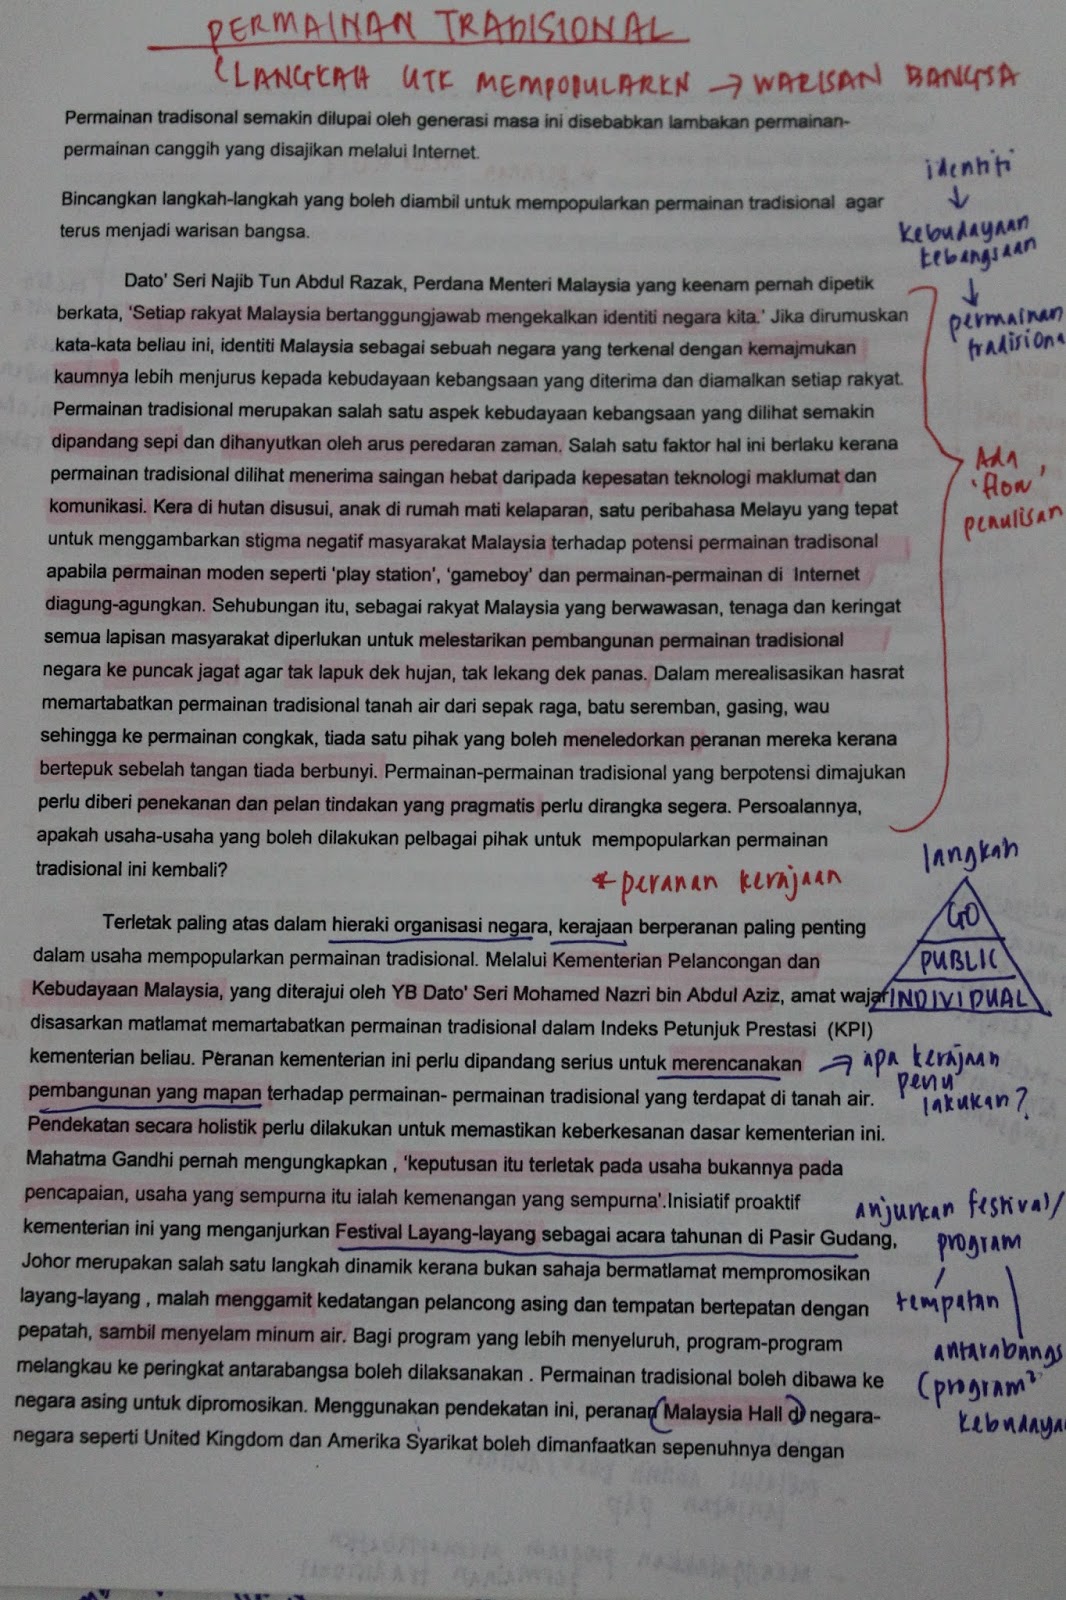 PERMAINAN TRADISIONAL
(LANGKAH UTK MEMPOPULARKN → WARISAN BANGSA
Permainan tradisonal semakin dilupai oleh generasi masa ini disebabkan lambakan permainan-
permainan canggih yang disajikan melalui Internet.
identiti
↓
kebudayaan
kebangsaan
↓
permainan
tradisiona
Bincangkan langkah-langkah yang boleh diambil untuk mempopularkan permainan tradisional agar
terus menjadi warisan bangsa.
Dato' Seri Najib Tun Abdul Razak, Perdana Menteri Malaysia yang keenam pernah dipetik
berkata, 'Setiap rakyat Malaysia bertanggungjawab mengekalkan identiti negara kita.' Jika dirumuskan
kata-kata beliau ini, identiti Malaysia sebagai sebuah negara yang terkenal dengan kemajmukan
kaumnya lebih menjurus kepada kebudayaan kebangsaan yang diterima dan diamalkan setiap rakyat.
Permainan tradisional merupakan salah satu aspek kebudayaan kebangsaan yang dilihat semakin
dipandang sepi dan dihanyutkan oleh arus peredaran zaman. Salah satu faktor hal ini berlaku kerana
permainan tradisional dilihat menerima saingan hebat daripada kepesatan teknologi maklumat dan
komunikasi. Kera di hutan disusui, anak di rumah mati kelaparan, satu peribahasa Melayu yang tepat
untuk menggambarkan stigma negatif masyarakat Malaysia terhadap potensi permainan tradisonal
apabila permainan moden seperti 'play station', 'gameboy' dan permainan-permainan di Internet
diagung-agungkan. Sehubungan itu, sebagai rakyat Malaysia yang berwawasan, tenaga dan keringat
semua lapisan masyarakat diperlukan untuk melestarikan pembangunan permainan tradisional
negara ke puncak jagat agar tak lapuk dek hujan, tak lekang dek panas. Dalam merealisasikan hasrat
memartabatkan permainan tradisional tanah air dari sepak raga, batu seremban, gasing, wau
sehingga ke permainan congkak, tiada satu pihak yang boleh meneledorkan peranan mereka kerana
bertepuk sebelah tangan tiada berbunyi. Permainan-permainan tradisional yang berpotensi dimajukan
perlu diberi penekanan dan pelan tindakan yang pragmatis perlu dirangka segera. Persoalannya,
apakah usaha-usaha yang boleh dilakukan pelbagai pihak untuk mempopularkan permainan
tradisional ini kembali?
Ada
'flow'
penulisan
* peranan kerajaan
langkah
GO
PUBLIC
INDIVIDUAL
Terletak paling atas dalam hieraki organisasi negara, kerajaan berperanan paling penting
dalam usaha mempopularkan permainan tradisional. Melalui Kementerian Pelancongan dan
Kebudayaan Malaysia, yang diterajui oleh YB Dato' Seri Mohamed Nazri bin Abdul Aziz, amat wajar
disasarkan matlamat memartabatkan permainan tradisional dalam Indeks Petunjuk Prestasi (KPI)
kementerian beliau. Peranan kementerian ini perlu dipandang serius untuk merencanakan
pembangunan yang mapan terhadap permainan- permainan tradisional yang terdapat di tanah air.
Pendekatan secara holistik perlu dilakukan untuk memastikan keberkesanan dasar kementerian ini.
Mahatma Gandhi pernah mengungkapkan , 'keputusan itu terletak pada usaha bukannya pada
pencapaian, usaha yang sempurna itu ialah kemenangan yang sempurna'.Inisiatif proaktif
kementerian ini yang menganjurkan Festival Layang-layang sebagai acara tahunan di Pasir Gudang,
Johor merupakan salah satu langkah dinamik kerana bukan sahaja bermatlamat mempromosikan
layang-layang , malah menggamit kedatangan pelancong asing dan tempatan bertepatan dengan
pepatah, sambil menyelam minum air. Bagi program yang lebih menyeluruh, program-program
melangkau ke peringkat antarabangsa boleh dilaksanakan . Permainan tradisional boleh dibawa ke
negara asing untuk dipromosikan. Menggunakan pendekatan ini, peranan Malaysia Hall di negara-
negara seperti United Kingdom dan Amerika Syarikat boleh dimanfaatkan sepenuhnya dengan
→ apa kerajaan
perlu
lakukan?
anjurkan festival/
program
tempatan
antarabangs
(program²
kebudaya